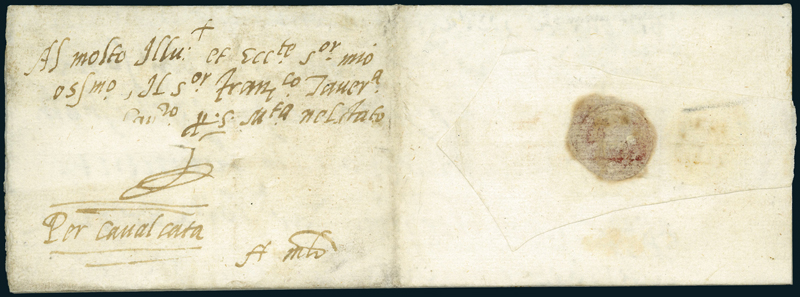 Al molto Illu: et Ecc.to s.or mio
oss.mo, Il s.or Fran.co Taver.a
p: s: M.ta nel stato
Per Cavalcata
A mlo